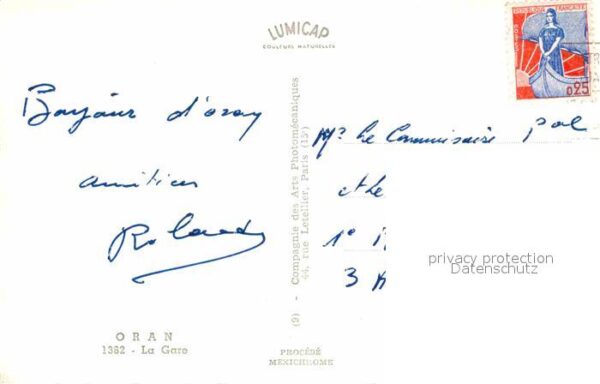 LUMICAP
COULEURS NATURELLES
RÉPUBLIQUE FRANÇAISE
0,25
Bonjour d'oran
amitiés
Roland
ORAN
1362 - La Gare
(9) - Compagnie des Arts Photomécaniques
44, rue Letellier, Paris (15e)
PROCÉDÉ
MEXICHROME
Mr Le Commissaire
1e
3
privacy protection
Datenschutz